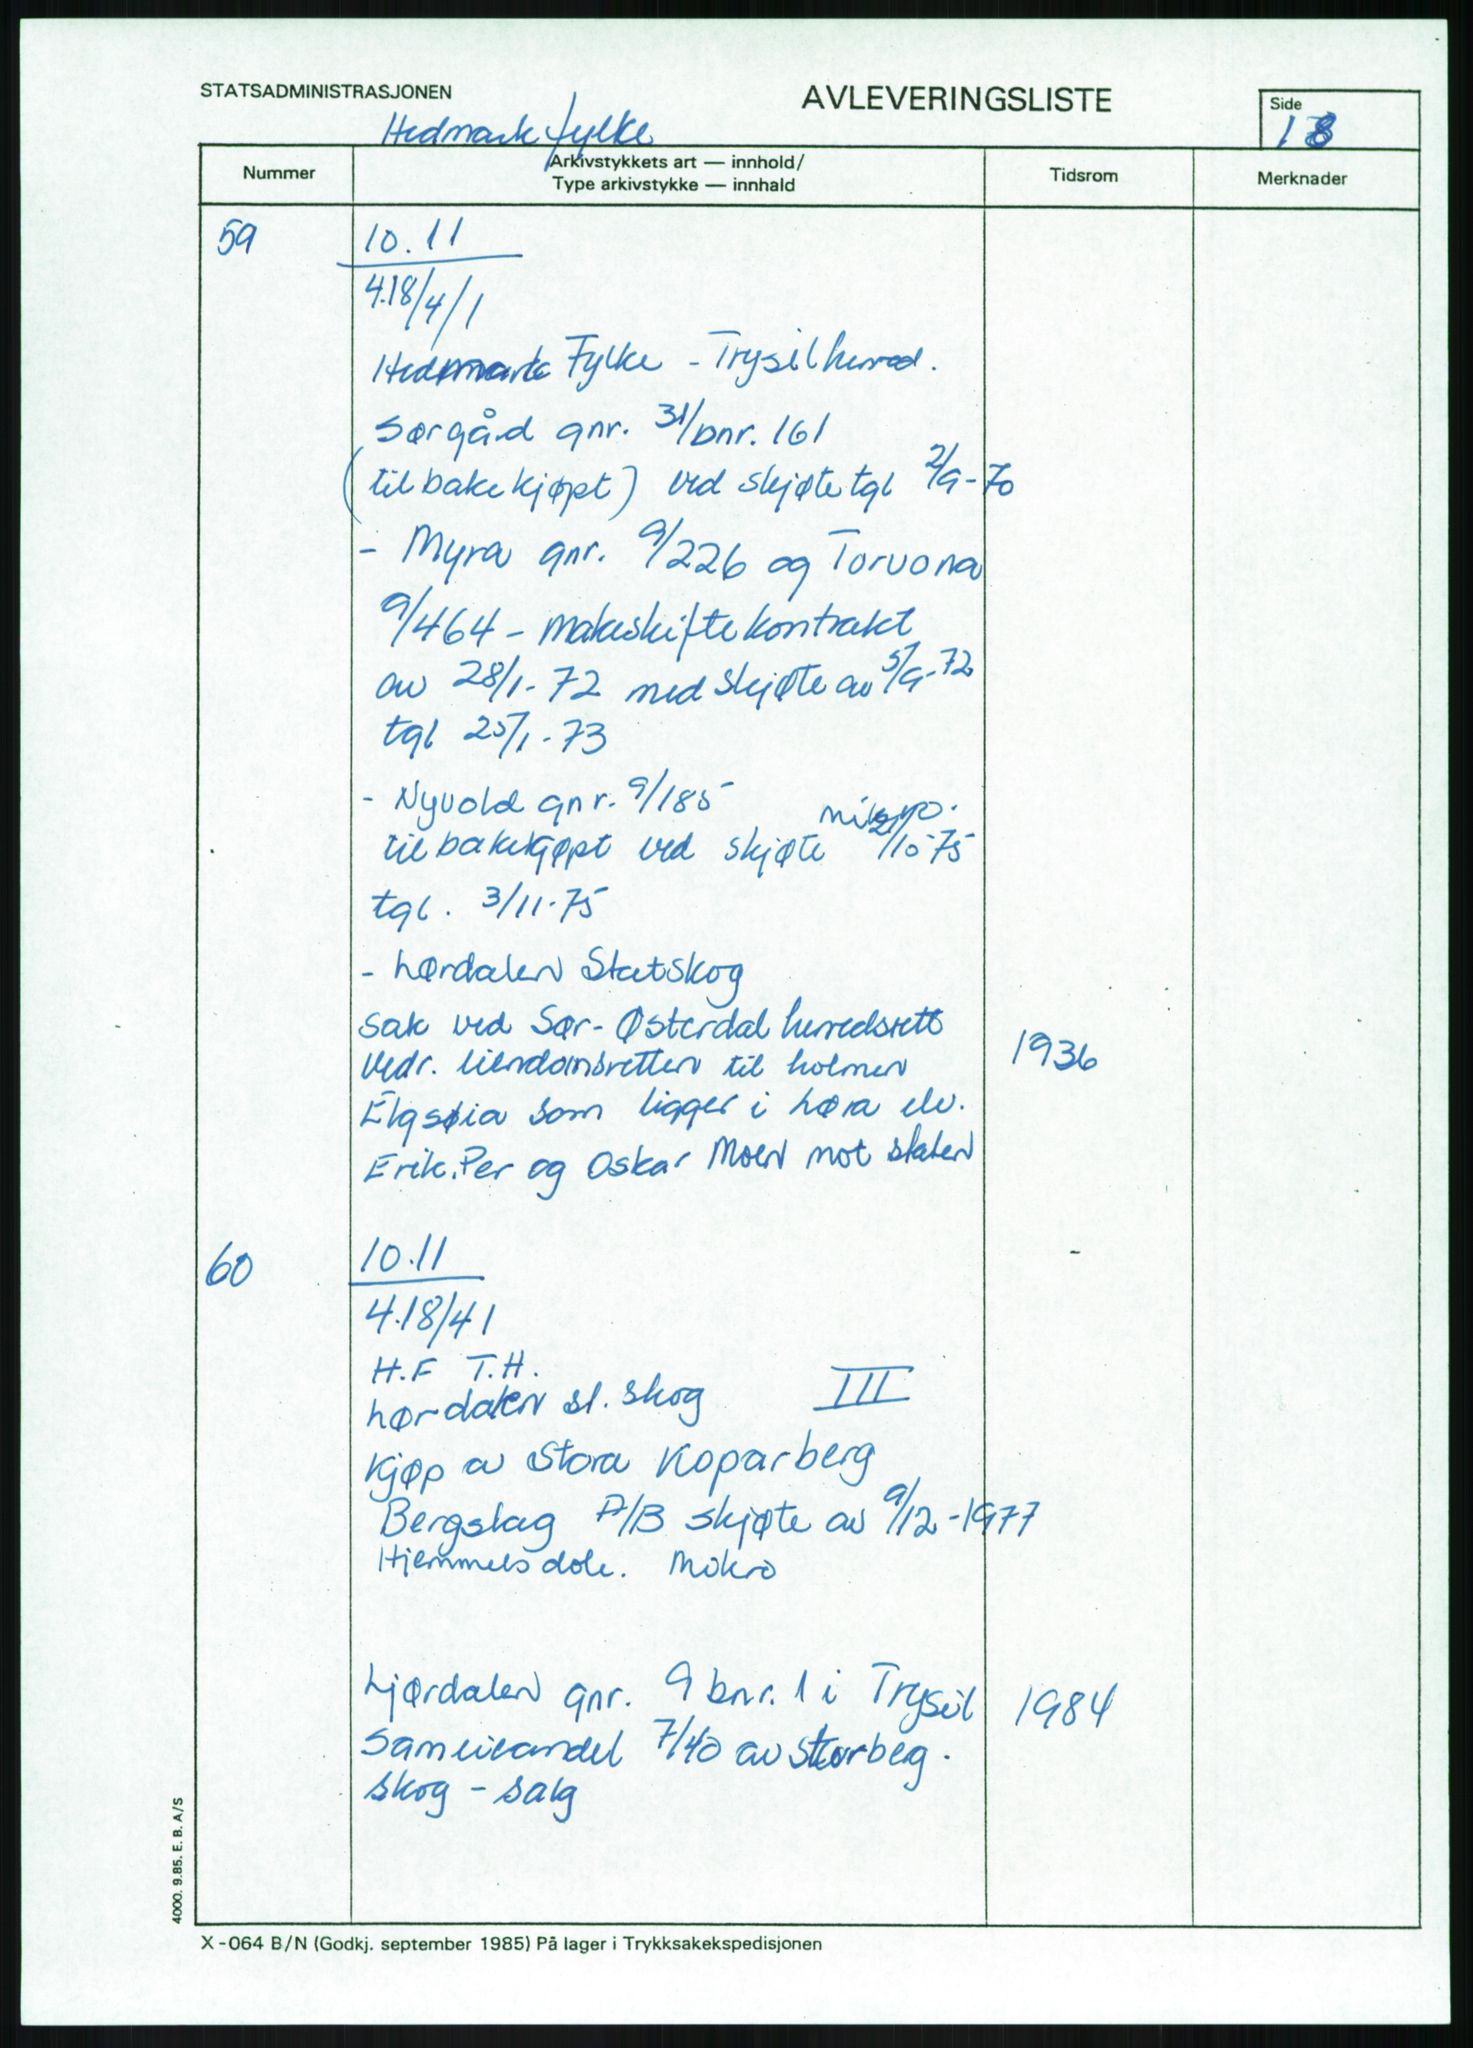 STATSADMINISTRASJONEN
AVLEVERINGSLISTE
Side
18
Hedmark fylke
Nummer
Arkivstykkets art — innhold/
Type arkivstykke — innhald
Tidsrom
Merknader
59
10.11
4.18/4/1
Hedmark Fylke - Trysil herred.
Sørgård gnr. 31/bnr. 161
(tilbakekjøpt) ved skjøte tgl 2/9-70
- Myra gnr. 9/226 og Torvona
9/464 - Makeskiftekontrakt
av 28/1-72 med skjøte av 5/9-72
tgl 25/1-73
- Nyvold gnr. 9/185
mikro.
tilbakekjøpt ved skjøte 2/10-75
tgl. 3/11-75
- Lørdalen Statskog
Sak ved Sør-Østerdal herredsrett
vedr. eiendomsretten til holmen 1936
Elgsøia som ligger i Løra elv.
Erik, Per og Oskar Moen mot staten
60
10.11
4.18/41
H.F T.H.
Lørdalen st. skog III
Kjøp av Stora Koparberg
Bergslag A/B skjøte av 9/12-1977
Hjemmelsdok. Mikro
Ljørdalen gnr. 9 bnr. 1 i Trysil 1984
Sameieandel 7/40 av Storberg.
Skog - salg
4000. 9.85. E. B. A/S
X-064 B/N (Godkj. september 1985) På lager i Trykksakekspedisjonen